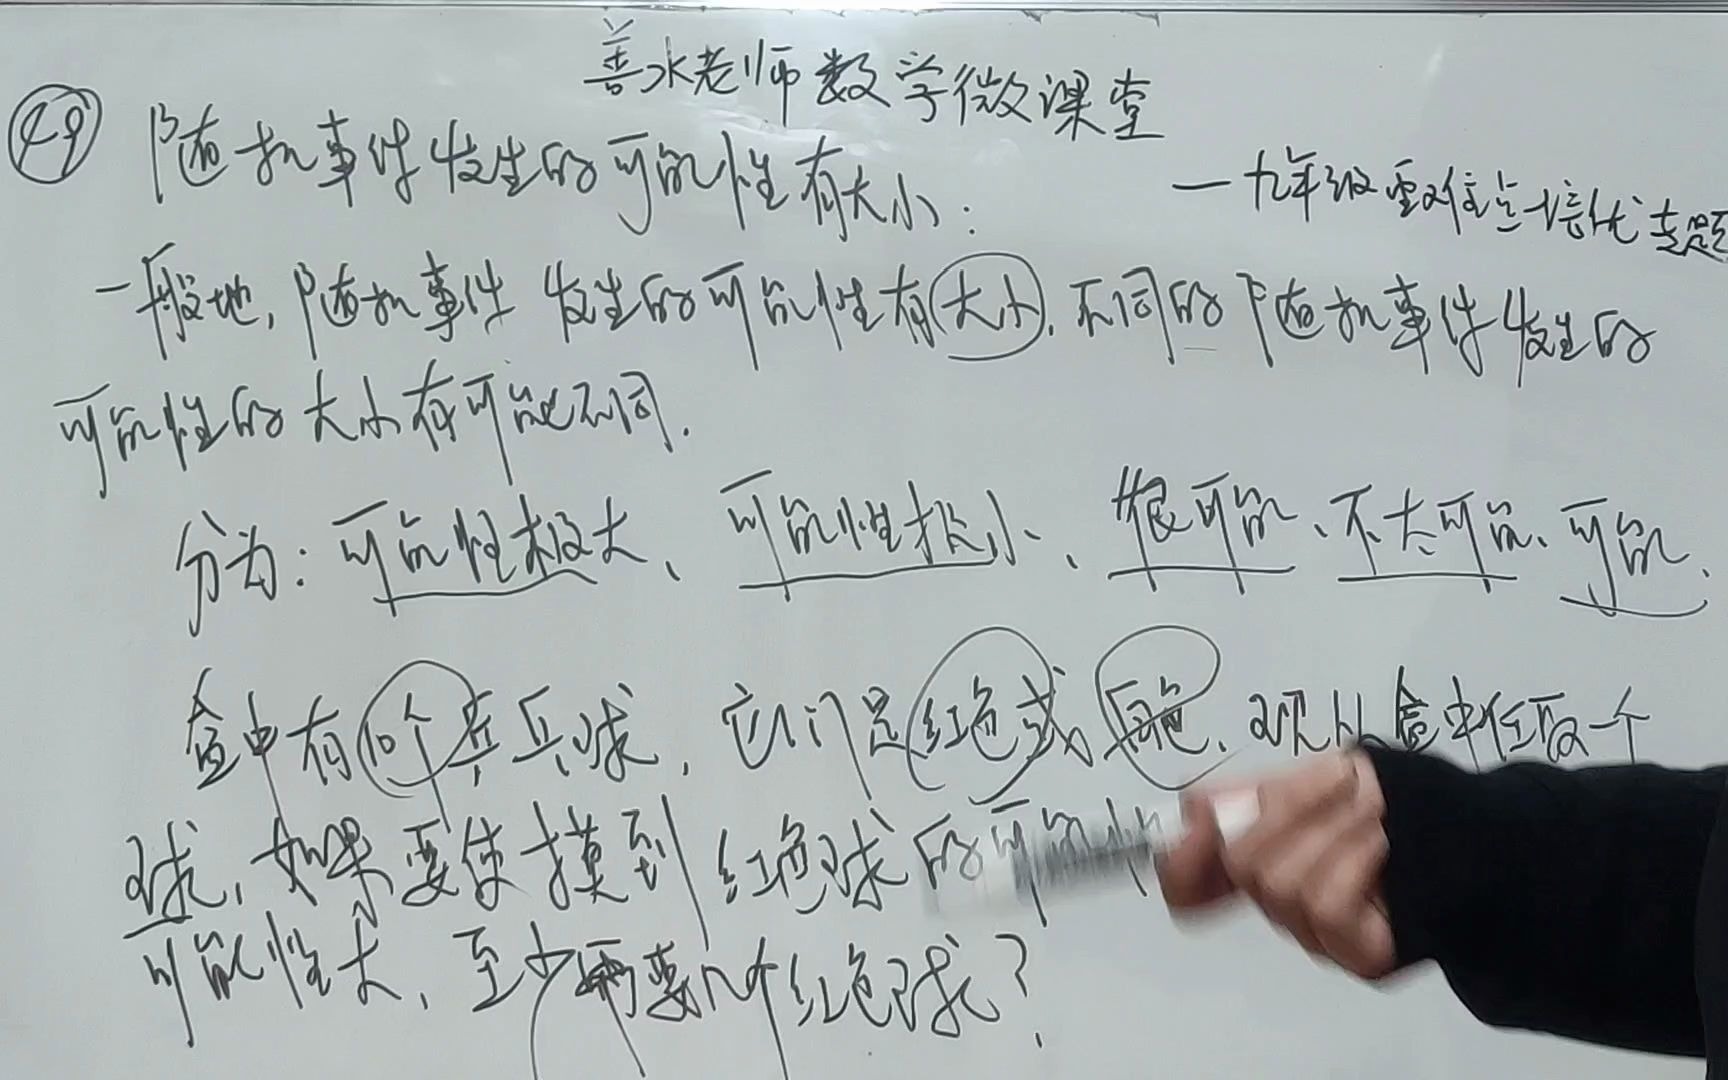 善水老师数学微课堂
—九年级重难点培优专题
㊾ 随机事件发生的可能性有大小:
一般地,随机事件发生的可能性有大小.不同的随机事件发生的
可能性的大小有可能不同.
分为:可能性极大、可能性极小、很可能、不太可能、可能.
盒中有10个乒乓球,它们是红色或白色.现从盒中任取一个
球,如果要使摸到红色球的可能性
可能性大,至少需要几个红色球?